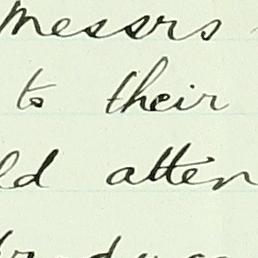 Messrs
to their
ld atten